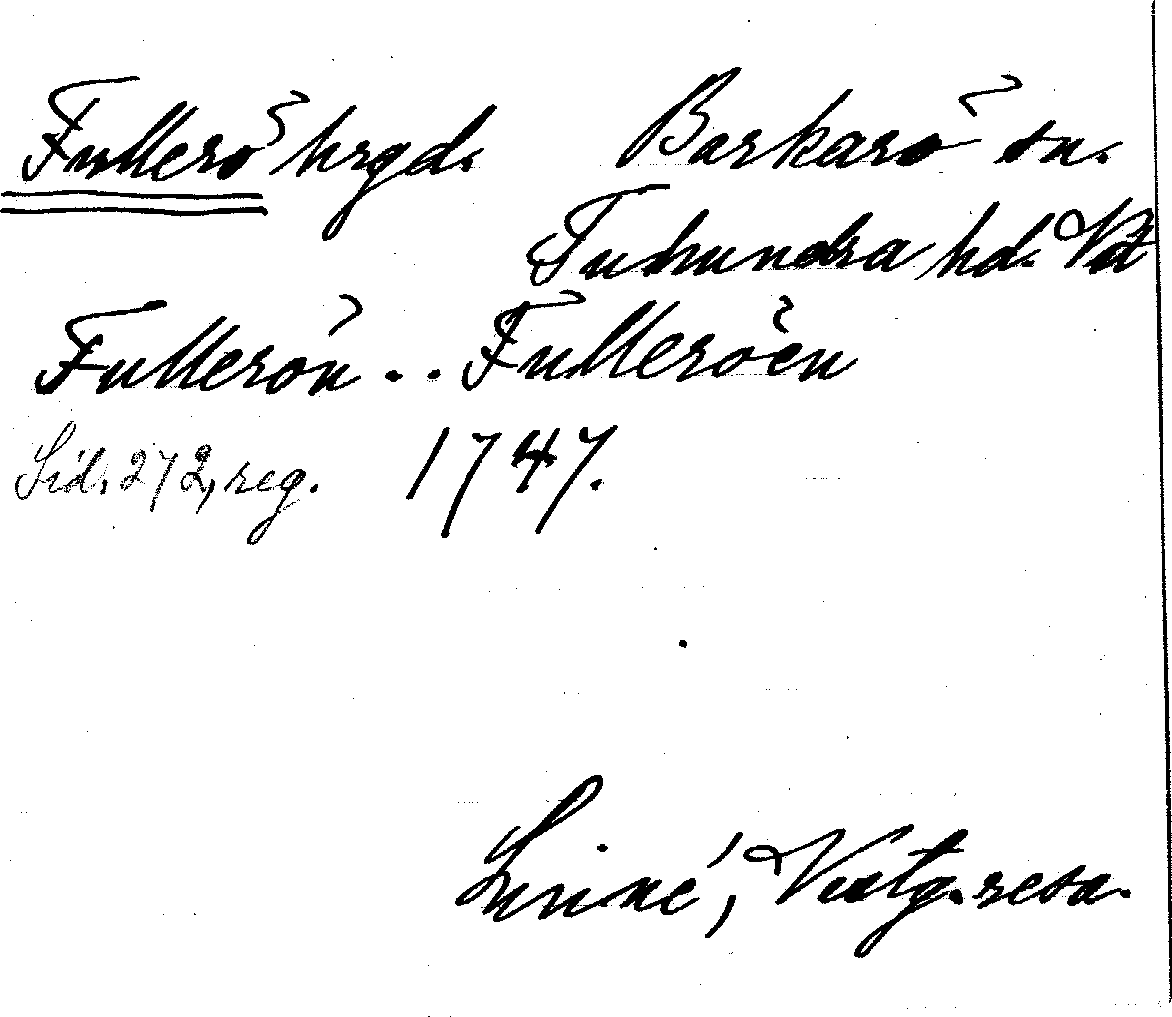 Fullerö hrgd. Barkarö sn.
Tuhundra hd. Vstm
Fullerön . . Fulleröen
Sid. 272, reg. 1747.
Linné, Västg. resa.